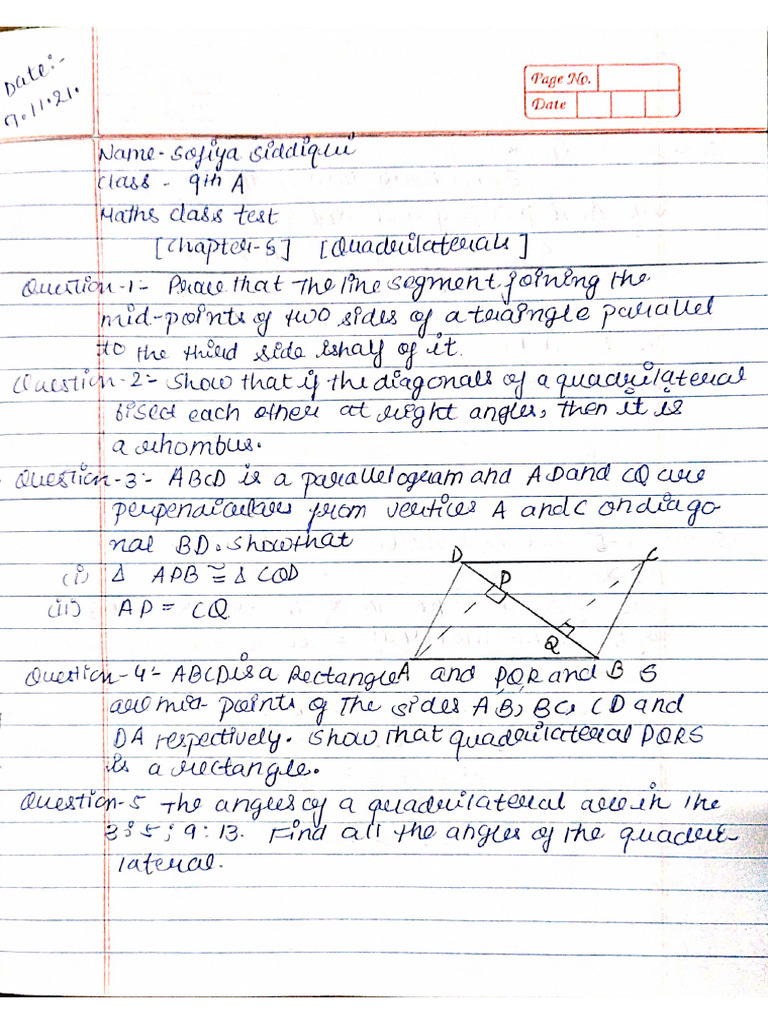 Date:-
9.11.21.
Page No.
Date
Name- Sofiya Siddiqui
Class - 9th A
Maths class test
[Chapter-8] [Quadrilaterals]
Question-1:- Prove that the line segment joining the
mid-points of two sides of a teraingle parallel
to the third side is half of it.
Question-2:- Show that if the diagonals of a quadrilateral
bisect each other at right angles, then it is
a rhombus.
Question-3:- ABCD is a parallelogram and AD and CQ are
perpendiculars from vertices A and C on diago
nal BD. Show that
(i) Δ APB ≅ Δ CQD
(ii) AP = CQ
D
C
P
Q
A
B
Question-4:- ABCD is a Rectangle and PQR and S
are mid-points of the sides AB, BC, CD and
DA respectively. Show that quadrilateral PQRS
is a rectangle.
Question-5 The angles of a quadrilateral are in the
3:5; 9:13. Find all the angles of the quadri-
lateral.